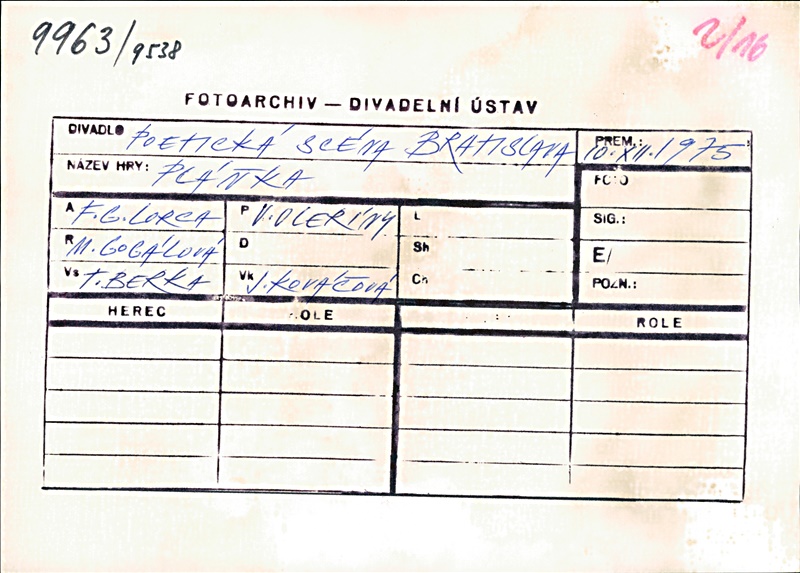 9963/9538
2/16
FOTOARCHIV — DIVADELNÍ ÚSTAV
DIVADLO POETICKÁ SCÉNA BRATISLAVA
PREM.: 10.XII.1975
NÁZEV HRY: PLÁNKA
FOTO
A F.G.LORCA P V.OLERÍNY L
SIG.:
R M.GOGÁLOVÁ D Sh
E/
Vs T.BERKA Vk J.KOVÁČOVÁ Ch
POZN.:
HEREC ROLE ROLE